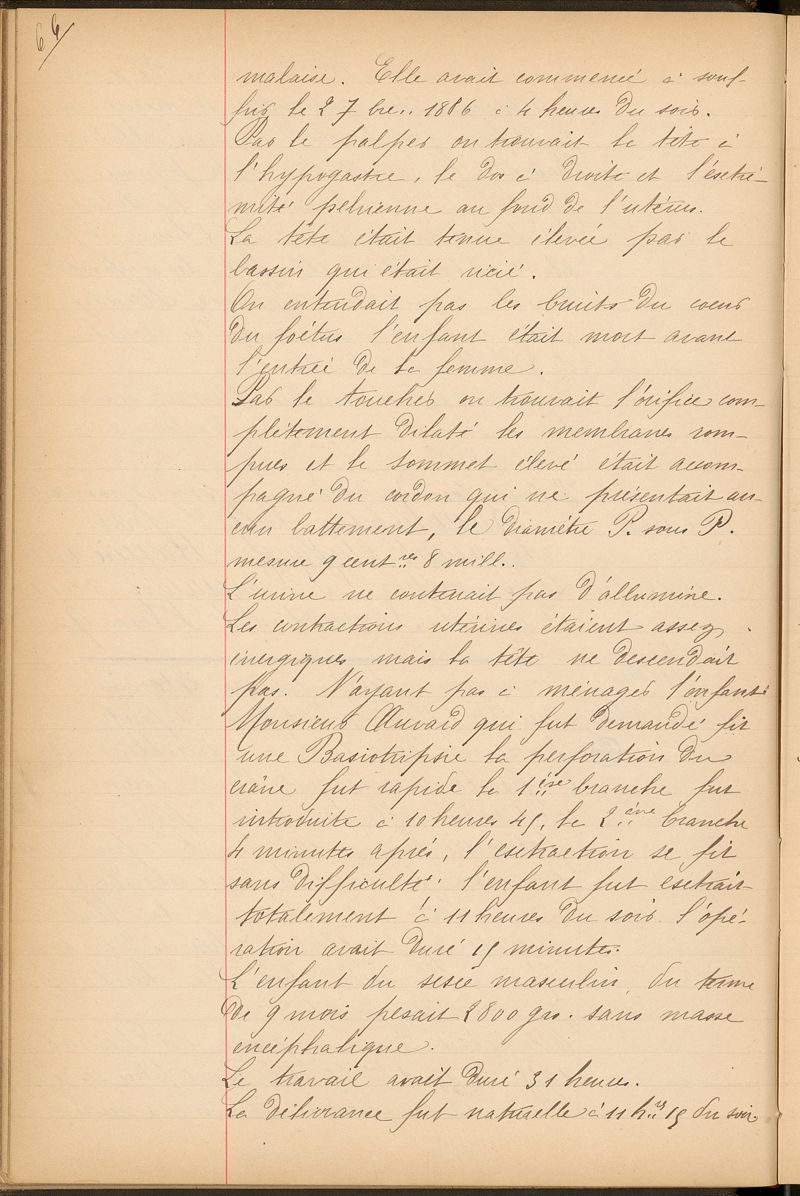 66
malaise. Elle avait commencé à souf-
frir le 27 bre.. 1886 à 4 heures du soir.
Par le palper on trouvait la tête à
l'hypogastre, le dos à droite et l'éxtré-
mité pelvienne au fond de l'utérus.
La tête était tenue élevée par le
bassin qui était vicié.
On entendait pas les bruits du coeur
du foetus l'enfant était mort avant
l'entrée de la femme.
Par le toucher on trouvait l'orifice com-
plètement dilaté les membranes rom-
pues et le sommet élevé était accom-
pagné du cordon qui ne présentait au-
cun battement, le diamètre P. sous P.
mesure 9 cent res 8 mill..
L'urine ne contenait pas d'albumine.
Les contractions utérines étaient assez
énergiques mais la tête ne descendait
pas. N'ayant pas à ménager l'enfant
Monsieur Auvard qui fut demandé fit
une Basiotripsie la perforation du
crâne fut rapide la 1ère branche fut
introduite à 10 heures 45, la 2ème branche
4 minutes après, l'extraction se fit
sans difficulté. l'enfant fut extrait
totalement à 11 heures du soir. l'opé-
ration avait duré 15 minutes.
L'enfant du sexe masculin, du terme
de 9 mois pesait 2800 grs. sans masse
encéphalique.
Le travail avait duré 31 heures.
La délivrance fut naturelle à 11 hrs 15 du soir